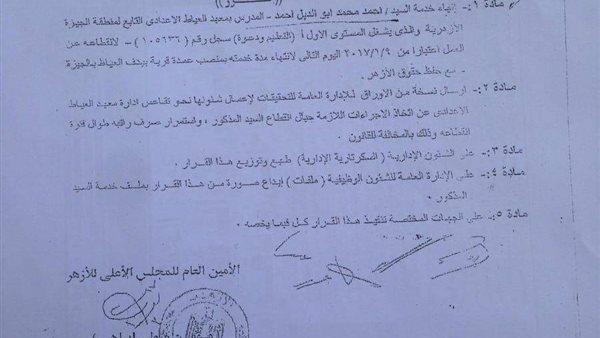 (( قـــــرر ))
مادة ١ :- إنهاء خدمة السيد / احمد محمد ابو النيل احمد - المدرس بمعهد العياط الاعدادى التابع لمنطقة الجيزة
الأزهرية والذى يشغل المستوى الاول أ (التعليم ودعوة) سجل رقم (١٠٥٦٣٦) - لانقطاعه عن
العمل اعتبارا من ٢٠١٧/١/٩ اليوم التالى لانتهاء مدة خدمته بمنصب عمدة قرية ببدف العياط بالجيزة
- مع حفظ حقوق الأزهر .
مادة ٢ :- ارسال نسخة من الاوراق للإدارة العامة للتحقيقات لإعمال شئونها نحو تقاعس ادارة معهد العياط
الاعدادى عن اتخاذ الاجراءات اللازمة حيال انقطاع السيد المذكور ، واستمرار صرف راتبه طوال فترة
انقطاعه وذلك بالمخالفة للقانون .
مادة ٣ :- على الشئون الإدارية ( السكرتارية الإدارية ) طبع وتوزيع هذا القرار .
مادة ٤ :- على الإدارة العامة للشئون الوظيفية ( ملفات ) إيداع صورة من هذا القرار بملف خدمة السيد
المذكور .
مادة ٥ :- على الجهات المختصة تنفيذ هذا القرار كل فيما يخصه .
الأمين العام للمجلس الأعلى للأزهر